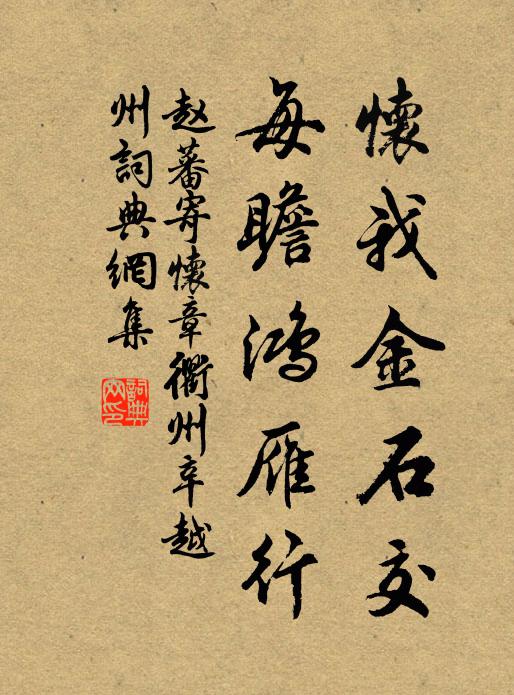 懷我金石交
每瞻鸿雁行
赵蕃寄懷章衢州辛越
州詞典網集
詞典
网印